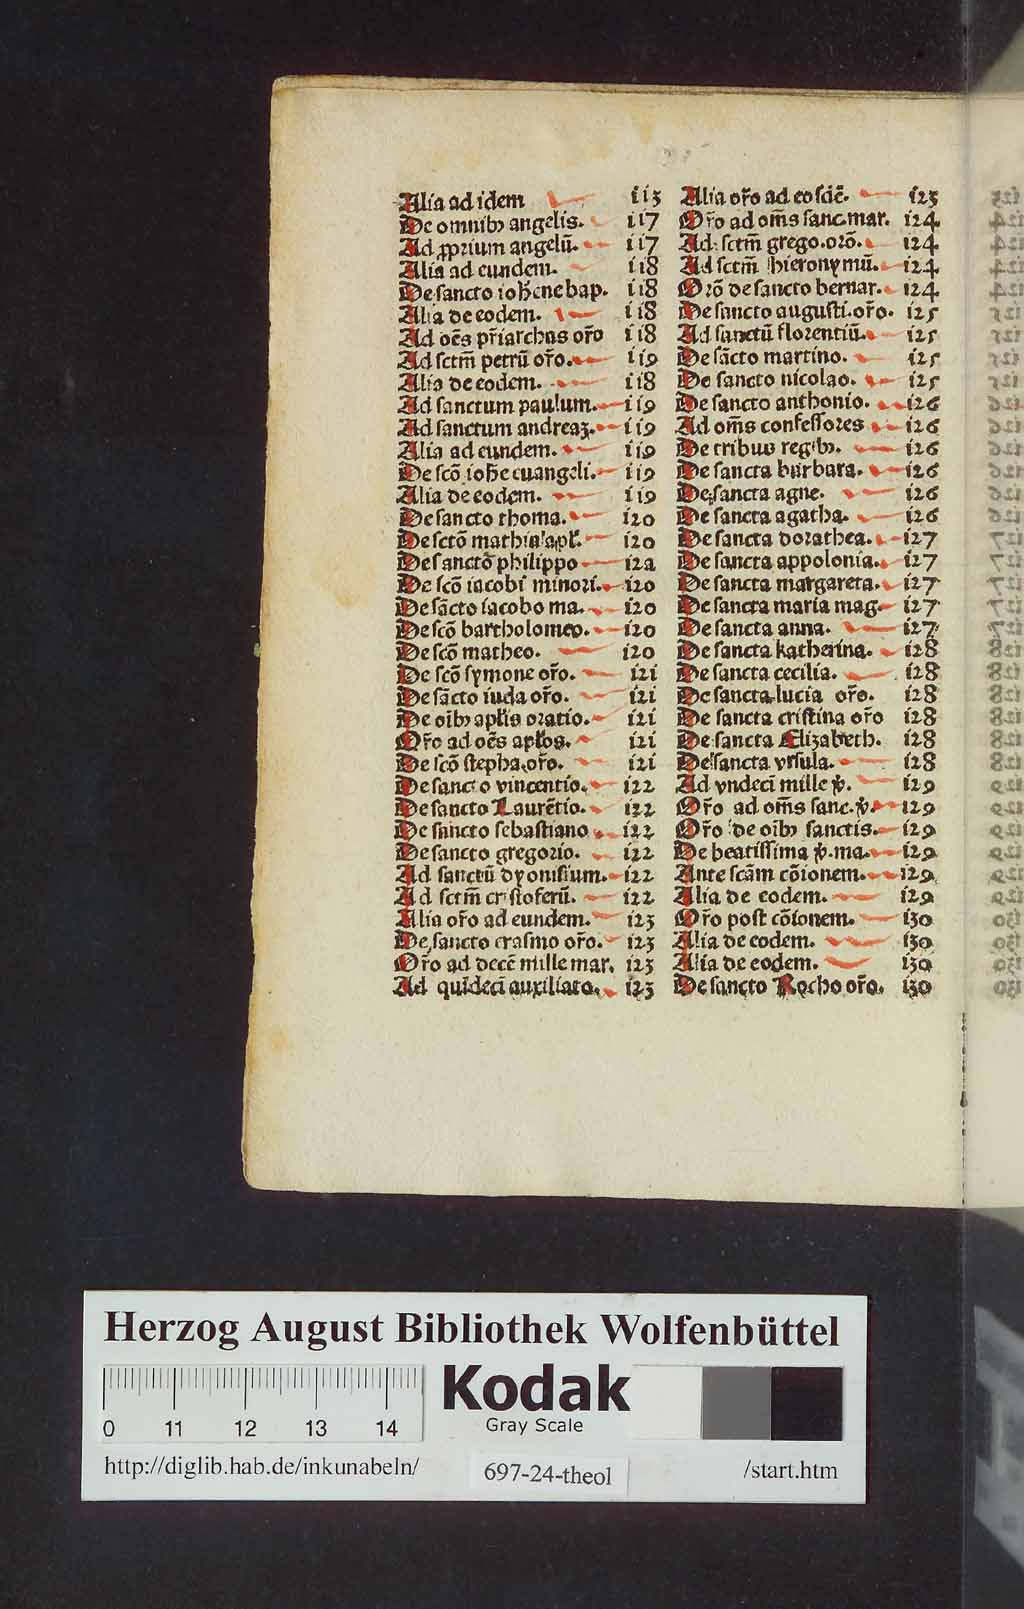 Alia ad idem 113
De omnibꝫ angelis. 117
Ad ꝓprium angelū. 117
Alia ad eundem. 118
De sancto ioh̄ene bap. 118
Alia de eodem. 118
Ad oēs pr̄iarchas or̄o 118
Ad sctm̄ petrū or̄o. 119
Alia de eodem. 118
Ad sanctum paulum. 119
Ad sanctum andreaʒ. 119
Alia ad eundem. 119
De scō ioh̄e euangeli. 119
Alia de eodem. 119
De sancto thoma. 120
De sctō mathia apl̄. 120
De sanctō philippo 12a
De scō iacobi minori. 120
De sācto iacobo ma. 120
De scō bartholomeo. 120
De scō matheo. 120
De scō symone or̄o. 121
De sācto iuda or̄o. 121
De oībꝫ aplīs oratio. 121
Or̄o ad oēs apl̄os. 121
De scō stepha. or̄o. 121
De sancto vincentio. 122
De sancto Laurētio. 122
De sancto sebastiano 122
De sancto gregorio. 122
Ad sanctū dyonisium. 122
Ad sctm̄ cristoferū. 122
Alia or̄o ad eundem. 123
De sancto erasmo or̄o. 123
Or̄o ad decē mille mar. 123
Ad quīdecī auxiliato. 123
Alia or̄o ad eosdē. 123
Or̄o ad om̄s sanc. mar. 124
Ad sctm̄ grego. orō. 124
Ad sctm̄ hieronymū. 124
Orō de sancto bernar. 124
De sancto augusti. or̄o. 125
Ad sanctū florentiū. 125
De sācto martino. 125
De sancto nicolao. 125
De sancto anthonio. 126
Ad om̄s confessores 126
De tribus regibꝫ. 126
De sancta barbara. 126
De sancta agne. 126
De sancta agatha. 126
De sancta dorathea. 127
De sancta appolonia. 127
De sancta margareta. 127
De sancta maria mag. 127
De sancta anna. 127
De sancta katherina. 128
De sancta cecilia. 128
De sancta lucia or̄o. 128
De sancta cristina or̄o 128
De sancta Elizabeth. 128
De sancta vrsula. 128
Ad vndecī mille v̄. 129
Or̄o ad om̄s sanc. v̄. 129
Or̄o de oībꝫ sanctis. 129
De beatissima v̄. ma. 129
Ante scām cōionem. 129
Alia de eodem. 129
Or̄o post cōionem. 130
Alia de eodem. 130
Alia de eodem. 130
De sancto Rocho or̄o. 130
Herzog August Bibliothek Wolfenbüttel
0 11 12 13 14
Kodak
Gray Scale
http://diglib.hab.de/inkunabeln/
697-24-theol
/start.htm